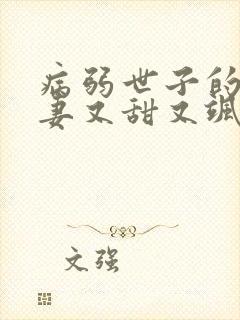 病弱世子的
妻又甜又飒
文强